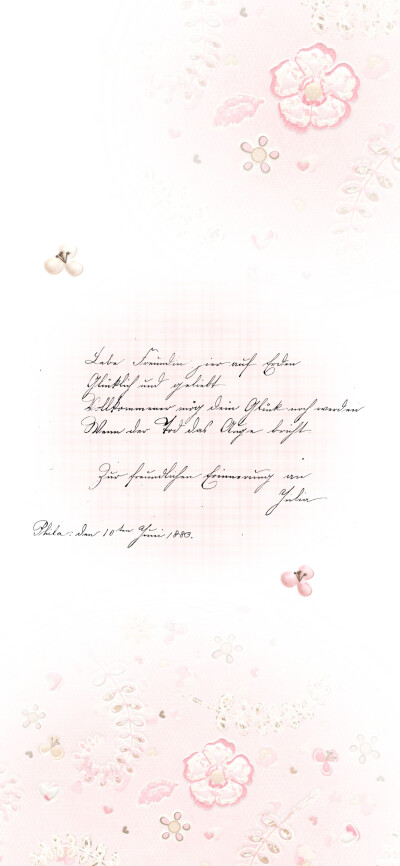 Lebe Freundin hier auf Erden
Glücklich und geliebt
Vollkommener mög dein Glück noch werden
Wenn der Tod das Auge bricht
Zur freundlichen Erinnerung an
Julia
Phila: den 10ten Juni 1883.